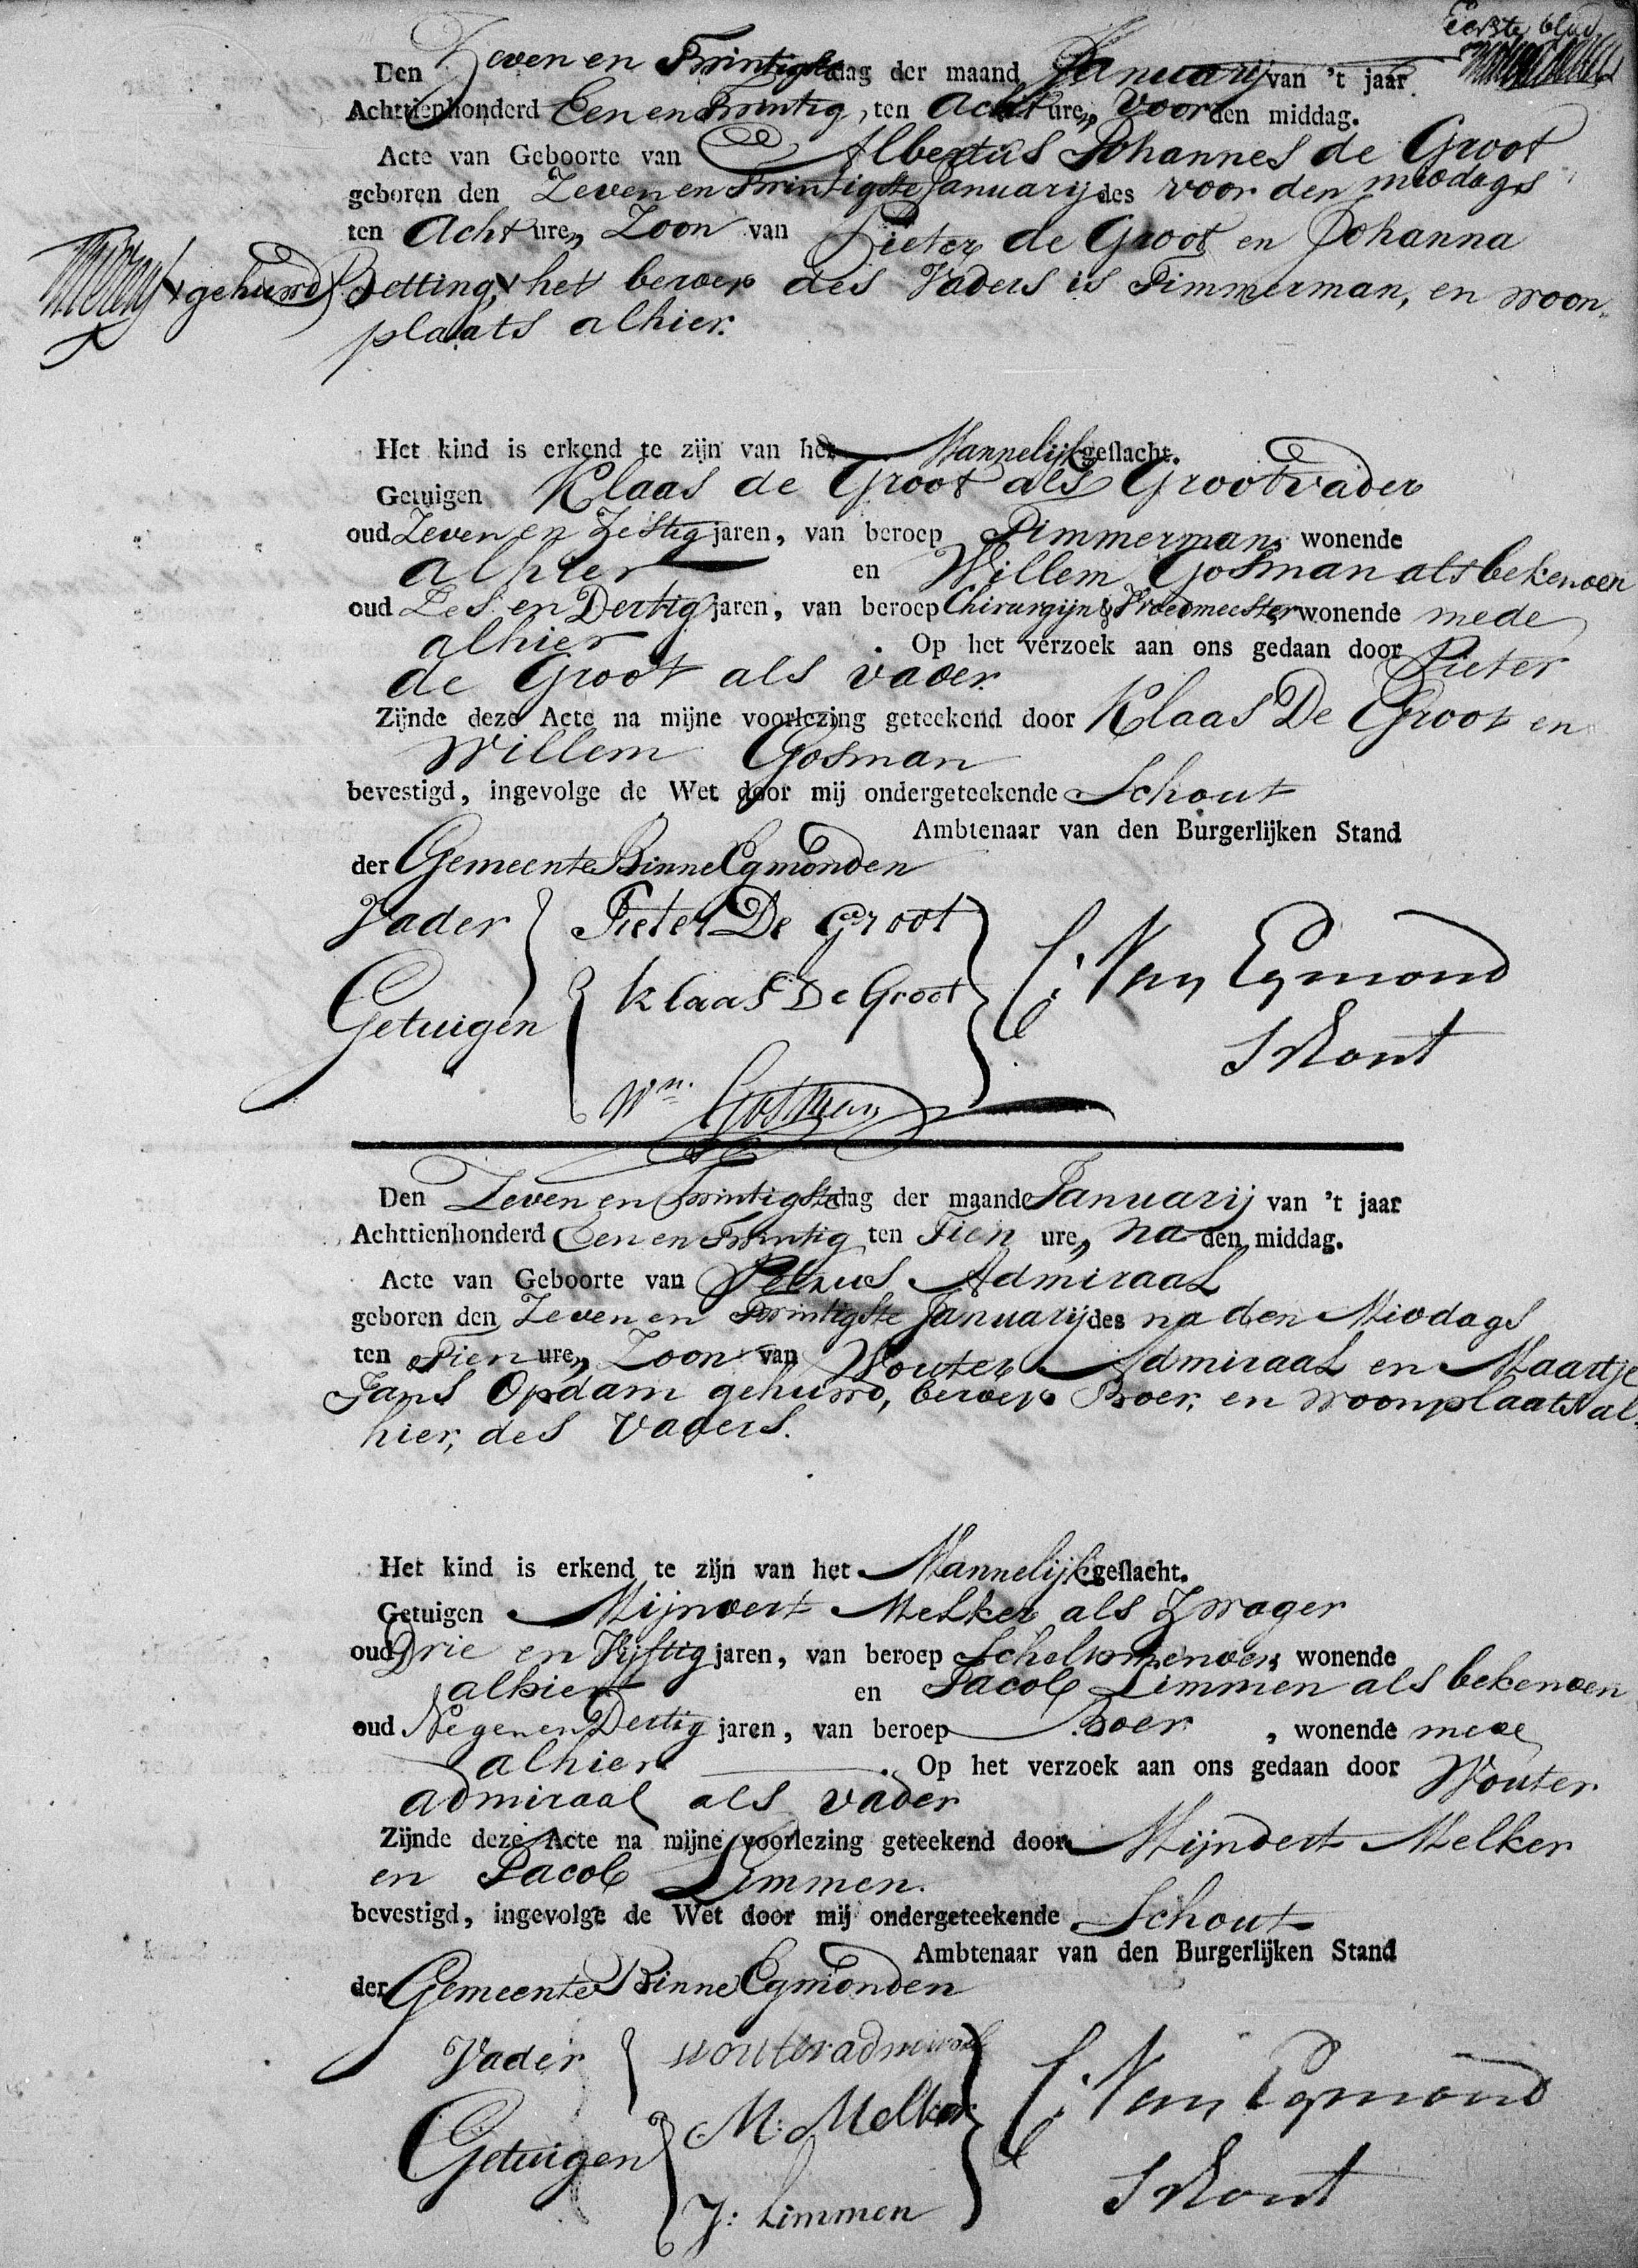 Eerste blad
Den Zeven en Twintigste dag der maand Januarij van 't jaar
Achttienhonderd Een en Twintig, ten Acht ure, Voor den middag.
Acte van Geboorte van Albertus Johannes de Groot
geboren den Zeven en Twintigste Januarij des voor den middags
ten Acht ure, Zoon van Pieter de Groot en Johanna
gehuwd Betting, het beroep des Vaders is Timmerman, en woon
plaats alhier.
Het kind is erkend te zijn van het Mannelijk geslacht.
Getuigen Klaas de Groot als Grootvader
oud Zeven en Zestig jaren, van beroep Timmerman, wonende
alhier en Willem Gosman als bekenden
oud Zes en Dertig jaren, van beroep Chirurgijn & Vroedmeester wonende mede
alhier. Op het verzoek aan ons gedaan door Pieter
de Groot als vader.
Zijnde deze Acte na mijne voorlezing geteekend door Klaas De Groot en
Willem Gosman
bevestigd, ingevolge de Wet door mij ondergeteekende Schout
Ambtenaar van den Burgerlijken Stand
der Gemeente Binne Egmonden
Vader Pieter De Groot
C: Van Egmond
Getuigen Klaas De Groot
Schout
Wm. Gosman
Den Zeven en Twintigste dag der maand Januarij van 't jaar
Achttienhonderd Een en Twintig ten Tien ure, na den middag.
Acte van Geboorte van Petrus Admiraal
geboren den Zeven en Twintigste Januarij des na den Middags
ten Tien ure, Zoon van Wouter Admiraal en Maartje
Jans Opdam gehuwd, beroep Boer, en woonplaats al
hier, des Vaders.
Het kind is erkend te zijn van het Mannelijk geslacht.
Getuigen Mijndert Melker als Zwager
oud Drie en Vijftig jaren, van beroep wonende
alhier en Jacob Limmen als bekenden
oud Negen en Dertig jaren, van beroep Boer, wonende mede
alhier. Op het verzoek aan ons gedaan door Wouter
admiraal als vader
Zijnde deze Acte na mijne voorlezing geteekend door Mijndert Melker
en Jacob Limmen.
bevestigd, ingevolge de Wet door mij ondergeteekende Schout
Ambtenaar van den Burgerlijken Stand
der Gemeente Binne Egmonden
Vader wouter admiraal
C: Van Egmond
Getuigen M: Melker
Schout
J: Limmen